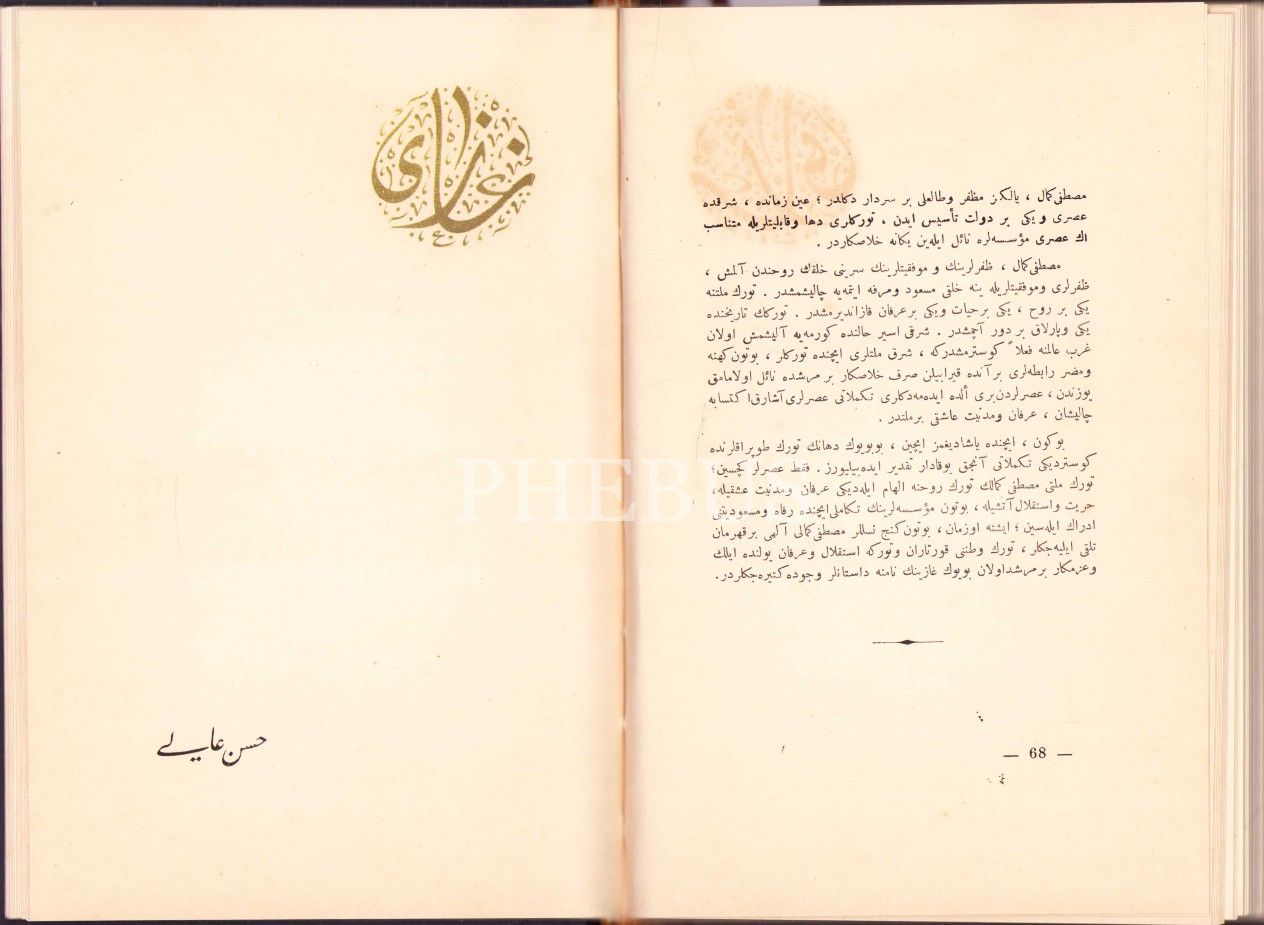 مصطفى كمال ، يالكز مظفر وطالعلى بر سردار دكلدر ؛ عين زمانده ، شرقده
عصرى و يكى بر دولت تأسيس ايدن ، توركلرى دها وقابليتلريله متناسب
اك عصرى مؤسسه‌لره نائل ايله‌ين يكانه خلاصكاردر .
مصطفى كمال ، ظفرلرينك و موفقيتلرينك سرينى خلقك روحندن آلمش ،
ظفرلرى وموفقيتلريله ينه خلقى مسعود ومرفه ايتمه‌يه چاليشمشدر . تورك ملتنه
يكى بر روح ، يكى بر حيات ويكى بر عرفان قازانديرمشدر . توركك تاريخنده
يكى وپارلاق بر دور آچمشدر . شرقى اسير حالنده كورمه‌يه آليشمش اولان
غرب عالمنه فعلاً كوسترمشدركه ، شرق ملتلرى ايچنده توركلر ، بوتون كهنه
ومضر رابطه‌لرى بر آنده قيرابيلن صرف خلاصكار بر مرشده نائل اولامامق
يوزندن ، عصرلردن‌برى ألده ايده‌مه‌دكلرى تكملاتى عصرلرى آشارق اكتسابه
چاليشان ، عرفان ومدنيت عاشقى بر ملتدر .
بوكون ، ايچنده ياشاديغمز ايچين ، بو بويوك دهانك تورك طوپراقلرنده
كوستردیكى تكملاتى آنجق بوقادار تقدير ايده‌بيليورز . فقط عصرلر كچسين ؛
تورك ملتى مصطفى كمالك تورك روحنه الهام ايله‌ديكى عرفان ومدنيت عشقيله ،
حريت واستقلال آتشيله ، بوتون مؤسسه‌لرينك تكاملى ايچنده رفاه ومسعوديتنى
ادراك ايله‌سين ؛ ايشته اوزمان ، بوتون كنج نسللر مصطفى كمالى آلهى بر قهرمان
تلقى ايليه‌جكلر ، تورك وطننى قورتاران وتوركه استقلال وعرفان يولنده ايلك
وعزمكار بر مرشد اولان بويوك غازينك نامنه داستانلر وجوده كتيره‌جكلردر .
— 68 —
غازى
حسن عالى
PHEBUS